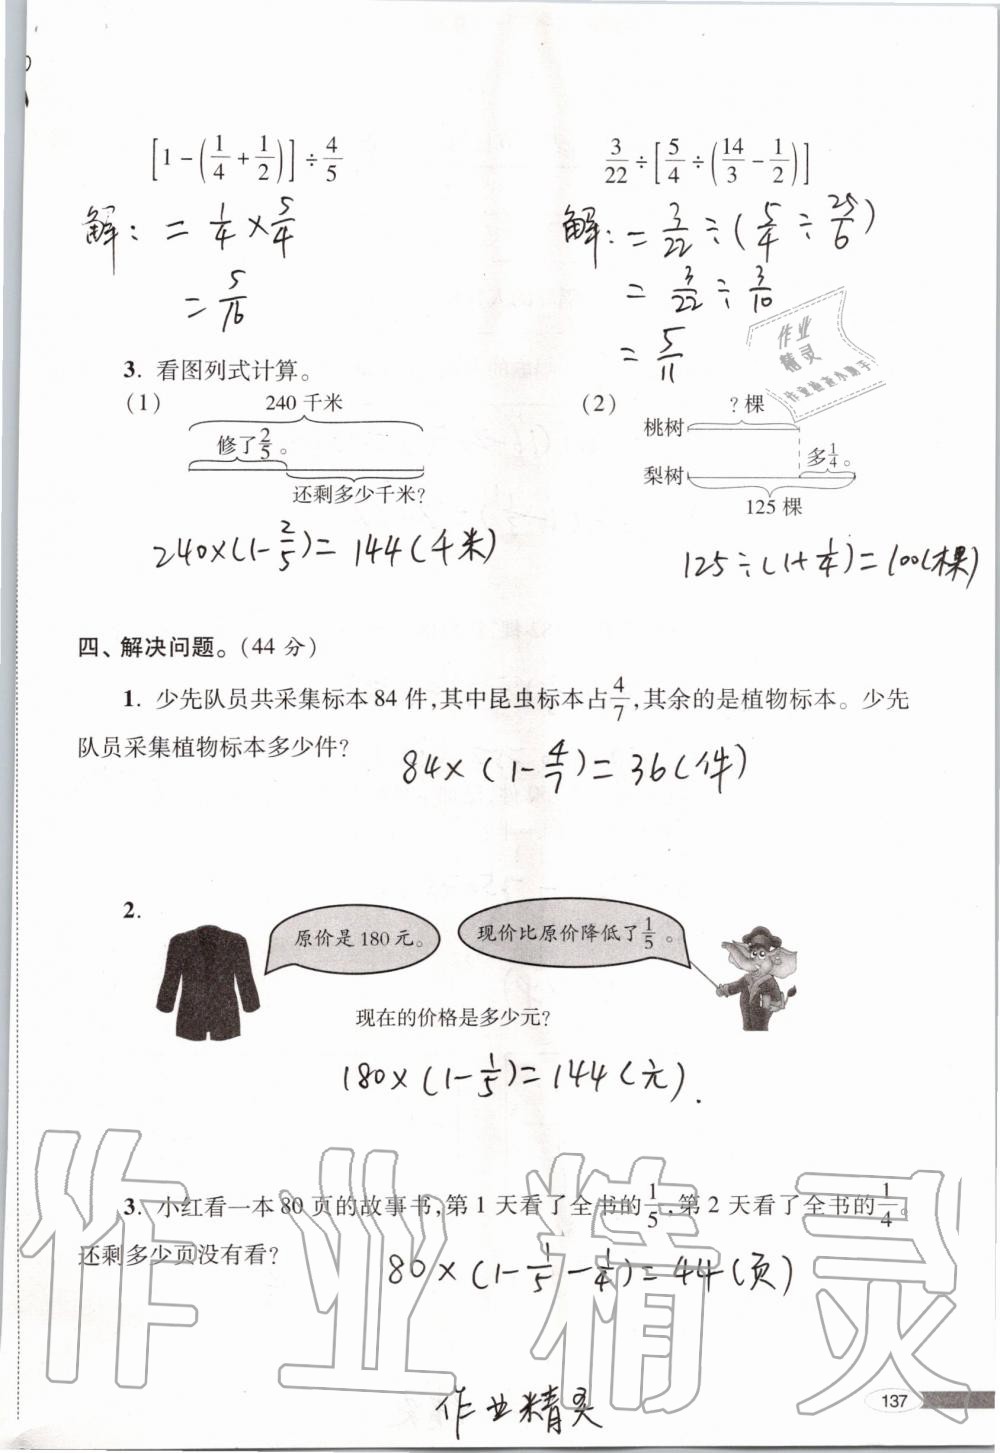 [1-(1/4+1/2)]÷4/5
解：=1/4×5/4
=5/16
3/22÷[5/4÷(14/3-1/2)]
解：=3/22÷(5/4÷25/6)
=3/22÷3/10
=5/11
作业
精灵
作业检查小助手
3. 看图列式计算。
(1)
240千米
修了2/5。
还剩多少千米？
240×(1-2/5)=144(千米)
(2)
？棵
桃树
多1/4。
梨树
125棵
125÷(1+1/4)=100(棵)
四、解决问题。(44分)
1. 少先队员共采集标本84件,其中昆虫标本占4/7,其余的是植物标本。少先
队员采集植物标本多少件？
84×(1-4/7)=36(件)
2.
原价是180元。
现价比原价降低了1/5。
现在的价格是多少元？
180×(1-1/5)=144(元).
3. 小红看一本80页的故事书,第1天看了全书的1/5,第2天看了全书的1/4。
还剩多少页没有看？
80×(1-1/5-1/4)=44(页)
作业精灵
作业精灵
137